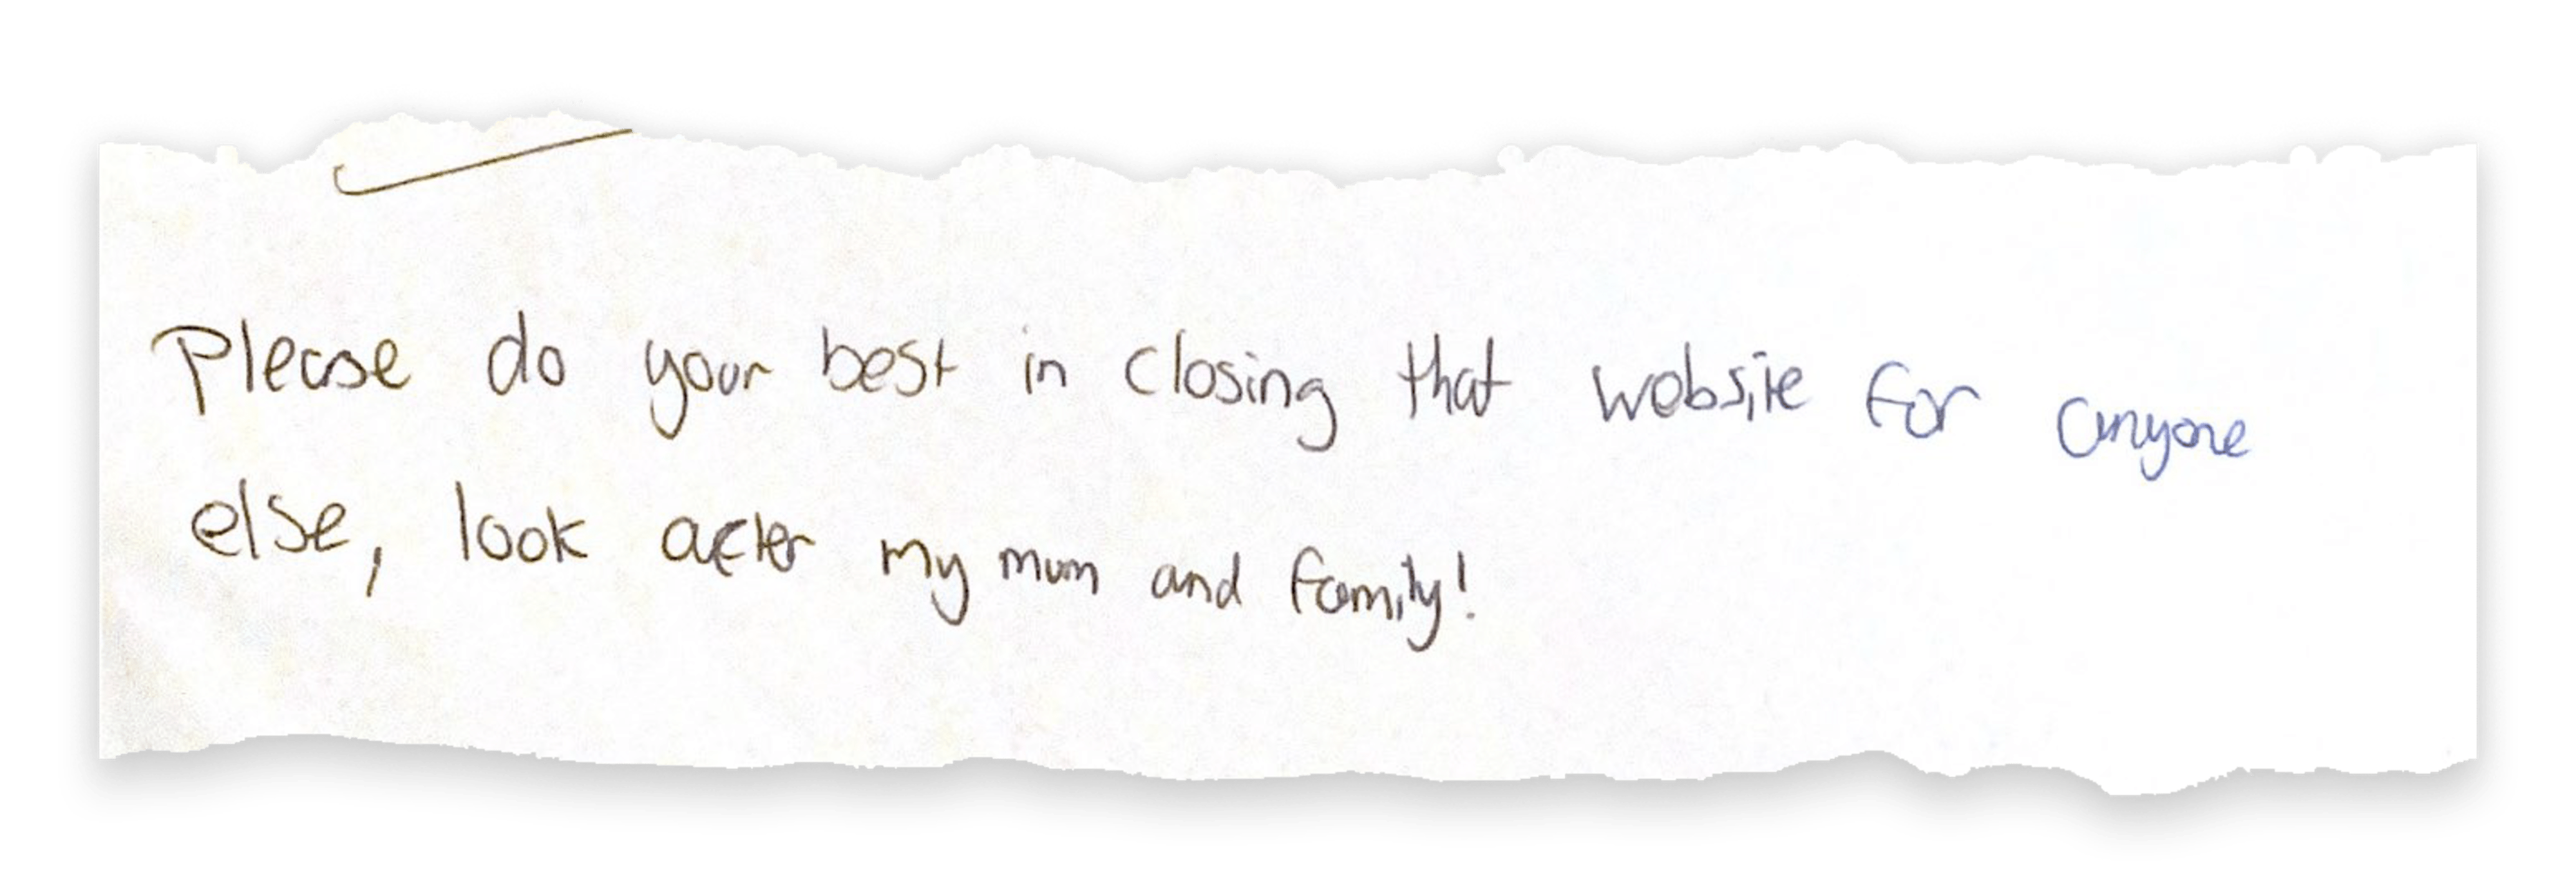 Please do your best in closing that website for anyone
else, look after my mum and family!